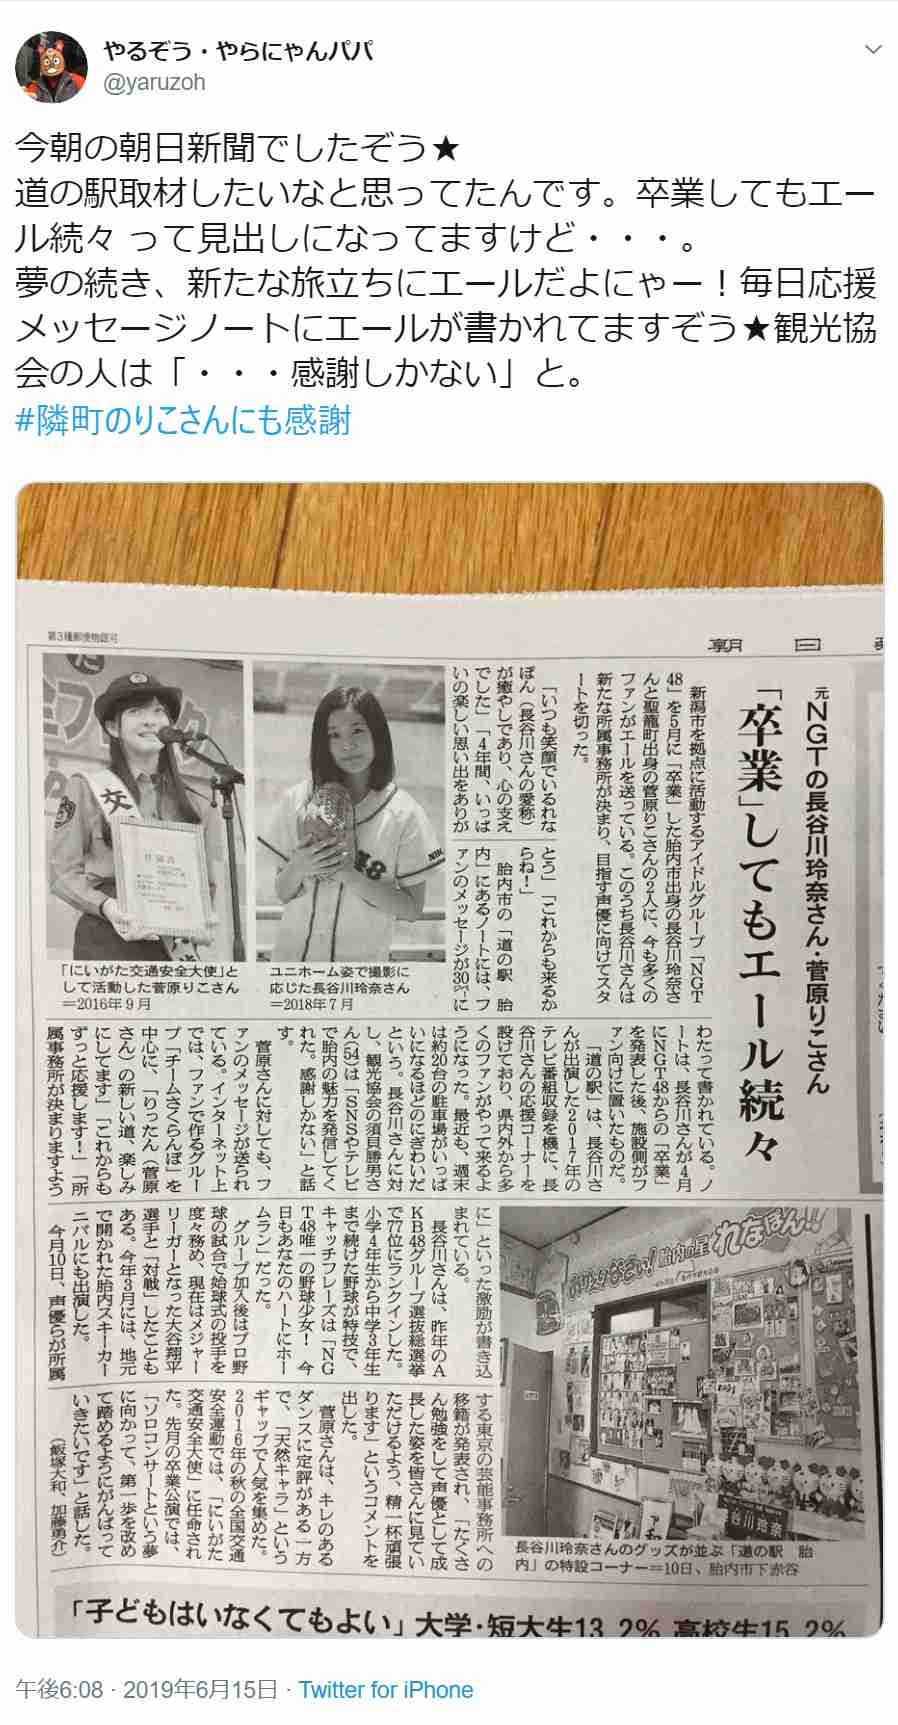 やるぞう・やらにゃんパパ
@yaruzoh
今朝の朝日新聞でしたぞう★
道の駅取材したいなと思ってたんです。卒業してもエー
ル続々 って見出しになってますけど・・・。
夢の続き、新たな旅立ちにエールだよにゃー！毎日応援
メッセージノートにエールが書かれてますぞう★観光協
会の人は「・・・感謝しかない」と。
#隣町のりこさんにも感謝
第3種郵便物認可
朝 日
元NGTの長谷川玲奈さん・菅原りこさん
「卒業」してもエール続々
新潟市を拠点に活動するアイドルグループ「NGT
48」を5月に「卒業」した胎内市出身の長谷川玲奈さ
んと聖籠町出身の菅原りこさんの2人に、今も多くの
ファンがエールを送っている。このうち長谷川さんは
新たな所属事務所が決まり、目指す声優に向けてスタ
ートを切った。
「いつも笑顔でいるれな
ぽん（長谷川さんの愛称）
が癒やしであり、心の支え
でした」「4年間、いっぱ
いの楽しい思い出をありが
とう」「これからも来るか
らね！」
胎内市の「道の駅 胎
内」にあるノートには、フ
ァンのメッセージが30㌻に
わたって書かれている。ノ
ートは、長谷川さんが4月
にNGT48からの「卒業」
を発表した後、施設側がフ
ァン向けに置いたものだ。
「道の駅」は、長谷川さ
んが出演した2017年の
テレビ番組収録を機に、長
谷川さんの応援コーナーを
設けており、県内外から多
くのファンがやって来るよ
うになった。最近も、週末
は約20台の駐車場がいっぱ
いになるほどのにぎわいだ
という。長谷川さんに対
し、観光協会の須貝勝男さ
ん(54)は「SNSやテレビ
で胎内の魅力を発信してく
れた。感謝しかない」と話
す。
菅原さんに対しても、フ
ァンのメッセージが送られ
ている。インターネット上
では、ファンで作るグルー
プ「チームさくらんぼ」を
中心に、「りったん（菅原
さん）の新しい道、楽しみ
にしてます」「これからも
ずっと応援します！」「所
属事務所が決まりますよう
に」といった激励が書き込
まれている。
長谷川さんは、昨年のA
KB48グループ選抜総選挙
で77位にランクインした。
小学4年生から中学3年生
まで続けた野球が特技で、
キャッチフレーズは「NG
T48唯一の野球少女！ 今
日もあなたのハートにホー
ムラン」だった。
グループ加入後はプロ野
球の試合で始球式の投手を
度々務め、現在はメジャー
リーガーとなった大谷翔平
選手と「対戦」したことも
ある。今年3月には、地元
で開かれた胎内スキーカー
ニバルにも出演した。
今月10日、声優らが所属
する東京の芸能事務所への
移籍が発表され、「たくさ
ん勉強をして声優として成
長した姿を皆さんに見てい
ただけるよう、精一杯頑張
ります」というコメントを
出した。
菅原さんは、キレのある
ダンスに定評がある一方
で、「天然キャラ」という
ギャップで人気を集めた。
2016年の秋の全国交通
安全運動では、「にいがた
交通安全大使」に任命され
た。先月の卒業公演では、
「ソロコンサートという夢
に向かって、第一歩を改め
て踏めるようにがんばって
いきたいです」と話した。
（飯塚大和、加藤勇介）
「にいがた交通安全大使」と
して活動した菅原りこさん
＝2016年9月
ユニホーム姿で撮影に
応じた長谷川玲奈さん
＝2018年7月
胎内の星 れなぽん!!
長谷川玲奈
長谷川玲奈さんのグッズが並ぶ「道の駅 胎
内」の特設コーナー＝10日、胎内市下赤谷
「子どもはいなくてもよい」大学・短大生13.2% 高校生15.2%
午後6:08 · 2019年6月15日 · Twitter for iPhone